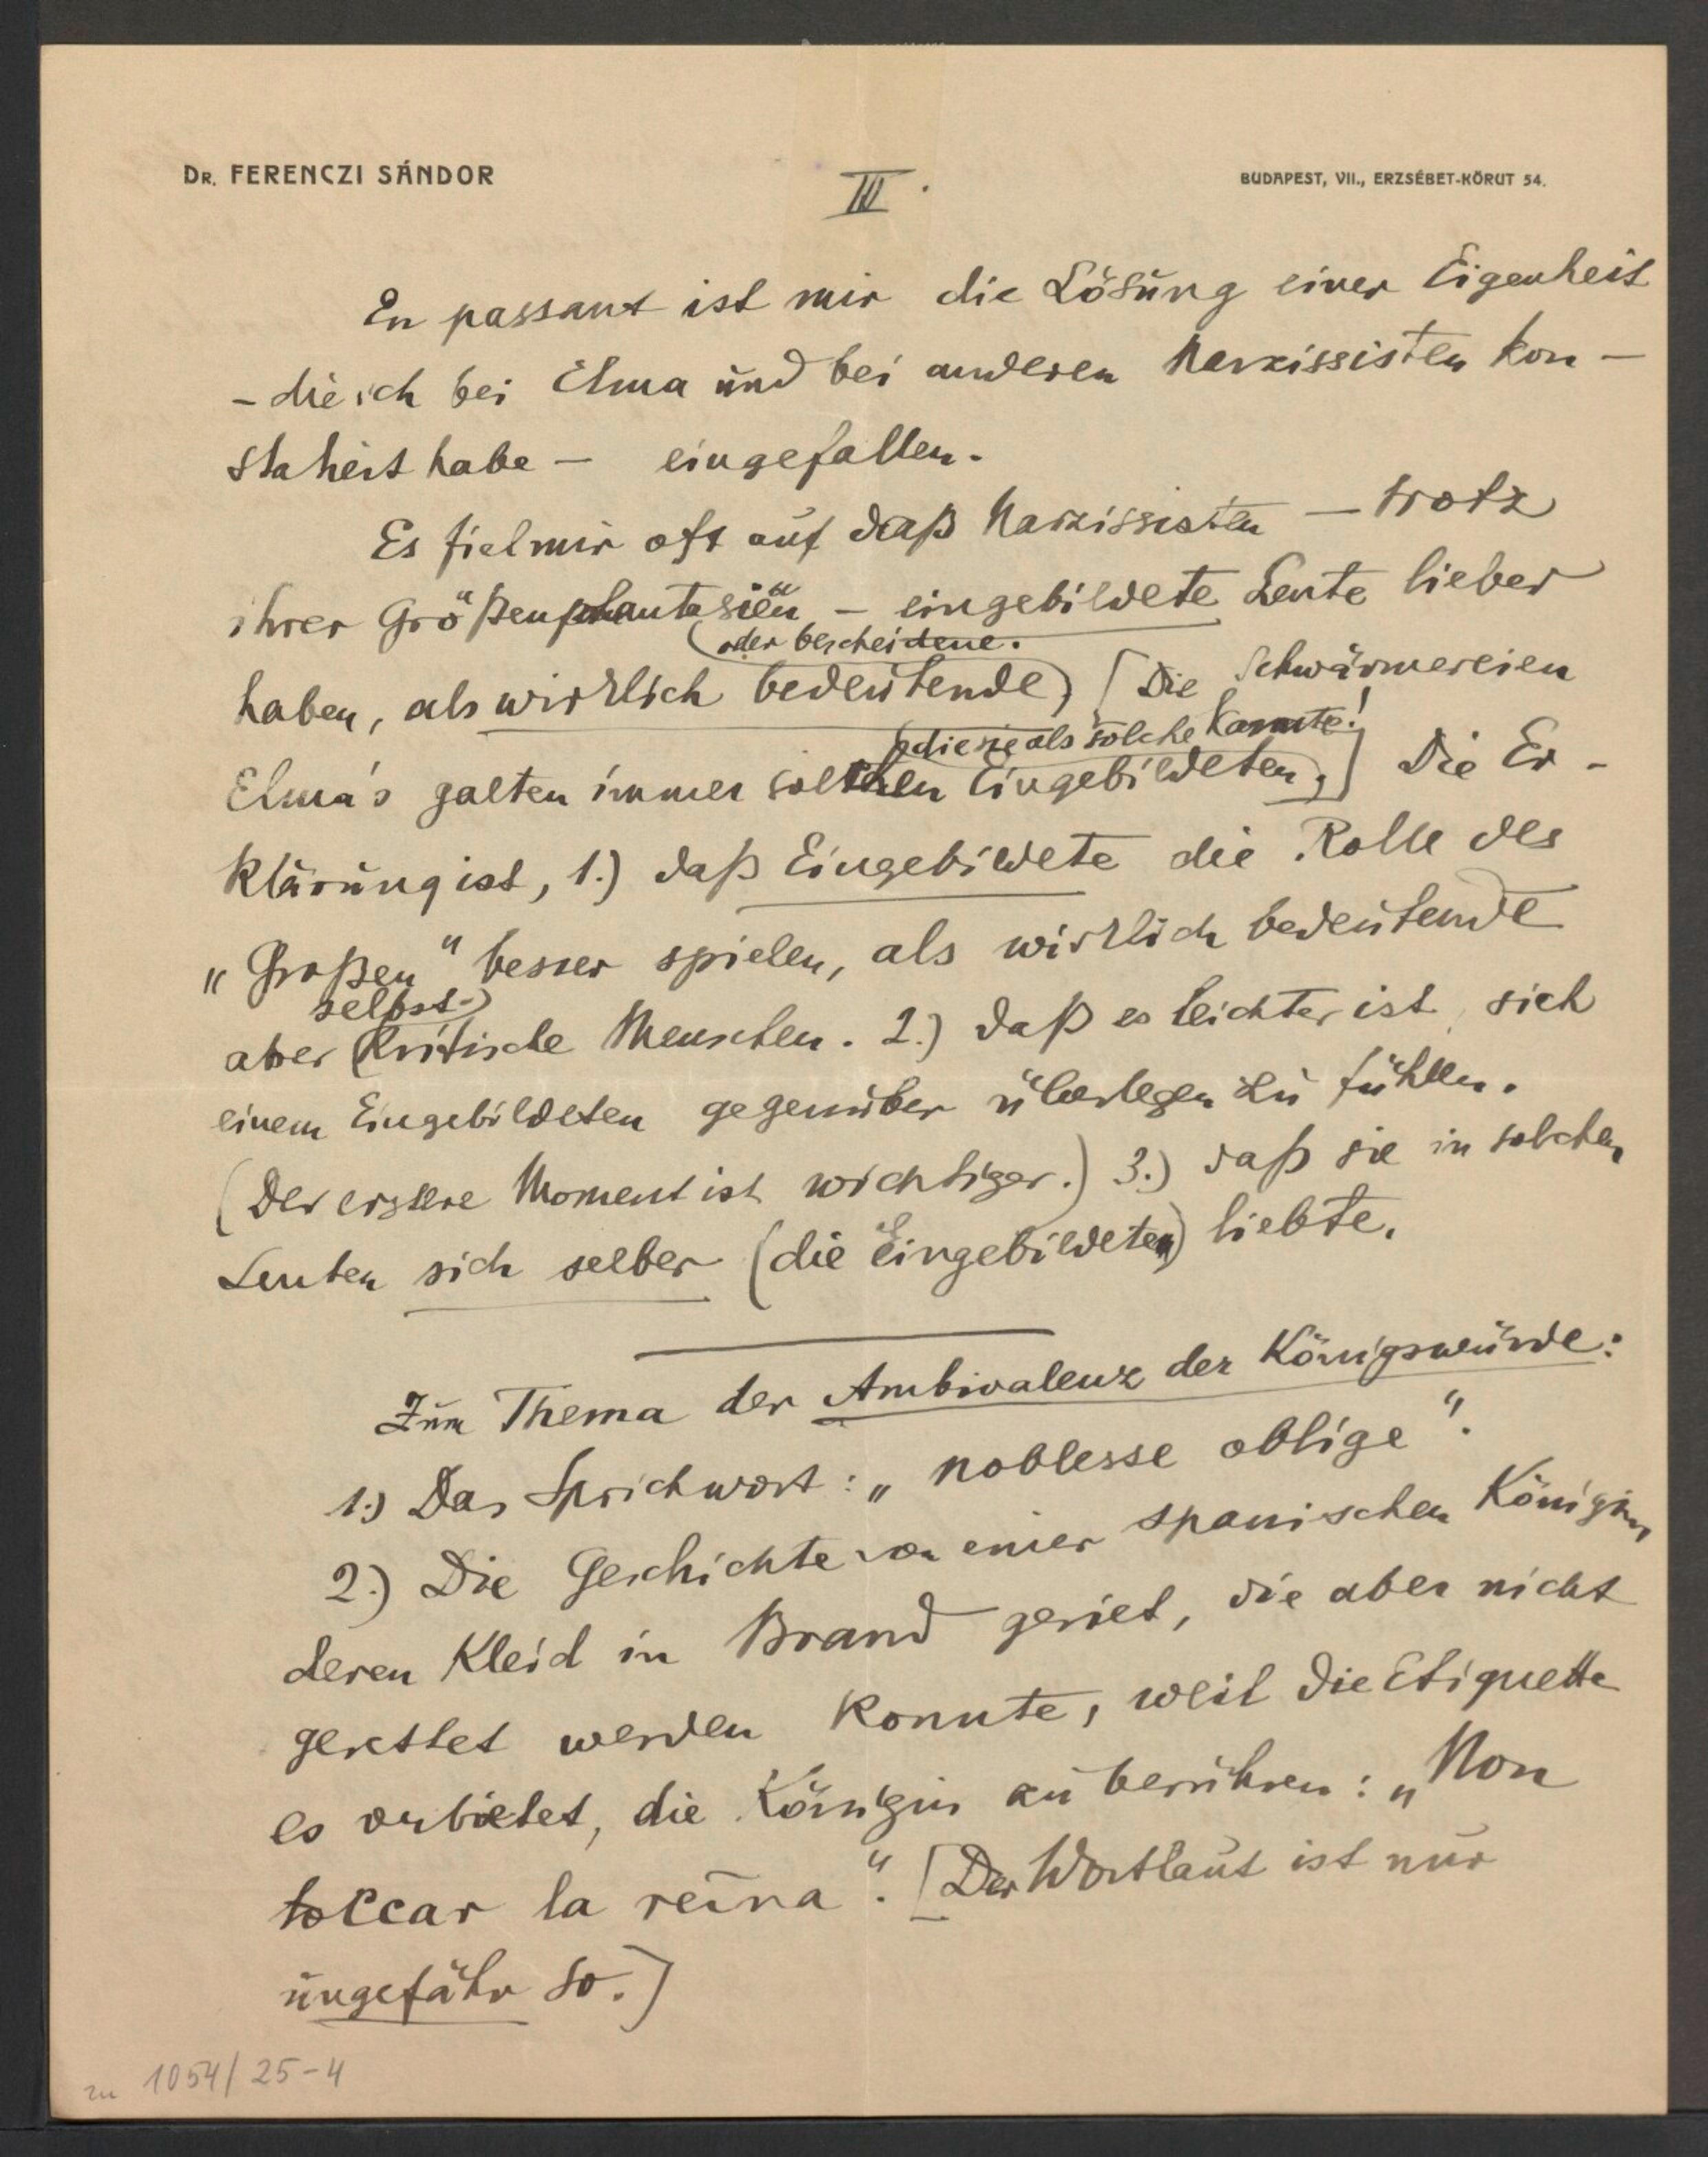 DR. FERENCZI SÁNDOR
III.
BUDAPEST, VII., ERZSÉBET-KÖRUT 54.
En passant ist mir die Lösung einer Eigenheit
– die ich bei Elma und bei anderen Narzissisten kon-
statiert habe – eingefallen.
Es fiel mir oft auf daß Narzissisten – trotz
ihrer Größenphantasien – eingebildete Leute lieber
oder bescheidene.
haben, als wirklich bedeutende, [Die Schwärmereien
die sie als solche kannte!
Elma's galten immer solchen Eingebildeten,] Die Er-
klärung ist, 1.) daß Eingebildete die Rolle des
„Großen“ besser spielen, als wirklich bedeutende
selbst-
aber kritische Menschen. 2.) daß es leichter ist, sich
einem Eingebildeten gegenüber überlegen zu fühlen.
(Der erstere Moment ist wichtiger.) 3.) daß sie in solchen
Leuten sich selber (die Eingebildeten) liebte.
Zum Thema der Ambivalenz der Königswürde:
1.) Das Sprichwort: „noblesse oblige“.
2.) Die Geschichte von einer spanischen Königin,
deren Kleid in Brand geriet, die aber nicht
gerettet werden konnte, weil die Etiquette
es verbietet, die Königin zu berühren: „Non
toccar la reina“. [Der Wortlaut ist nur
ungefähr so.]
zu 1054/25-4